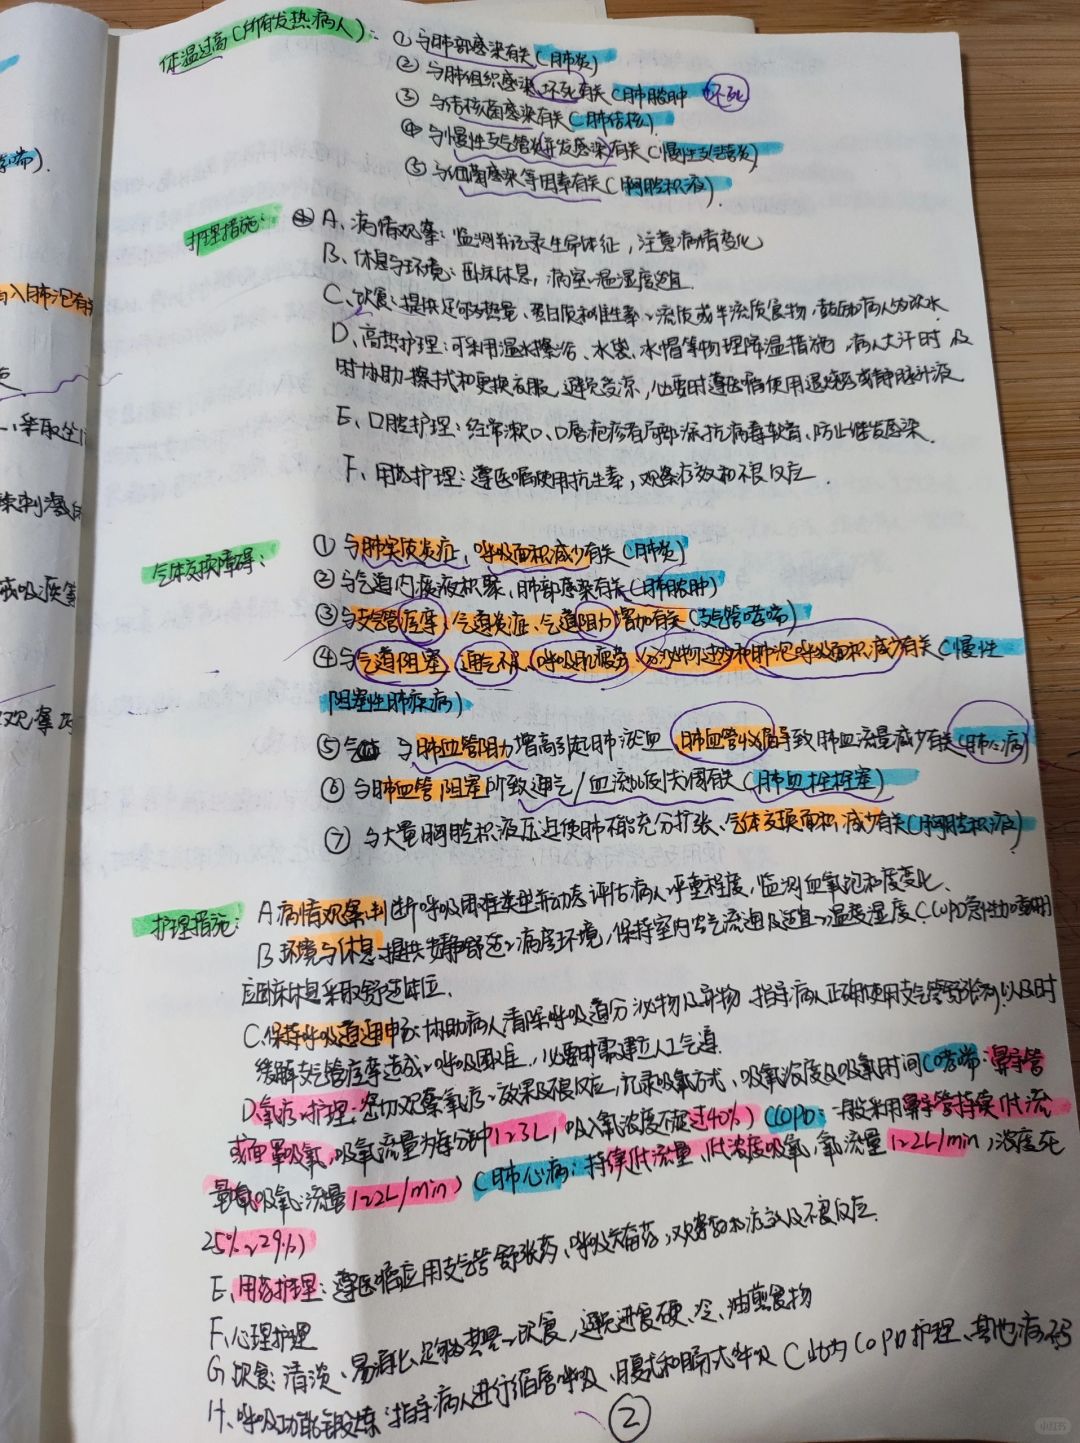 体温过高(所有发热病人):
① 与肺部感染有关(肺炎)
② 与肺组织感染、坏死有关(肺脓肿 坏死
③ 与结核菌感染有关(肺结核)
④ 与慢性支气管炎并发感染有关(慢性支气管炎)
⑤ 与细菌感染等因素有关(胸腔积液)
护理措施:
A、病情观察:监测并记录生命体征,注意病情变化
B、休息与环境:卧床休息,病室温湿度适宜
C、饮食:提供足够热量、蛋白质和维生素流质或半流质食物,鼓励病人多饮水
D、高热护理:可采用温水擦浴、冰袋、冰帽等物理降温措施,病人大汗时及
时协助擦拭和更换衣服,避免受凉,必要时遵医嘱使用退烧药或静脉补液
E、口腔护理:经常漱口、口唇疱疹者局部涂抗病毒软膏,防止继发感染.
F、用药护理:遵医嘱使用抗生素,观察疗效和不良反应.
气体交换障碍:
① 与肺实质炎症,呼吸面积减少有关(肺炎)
② 与气道内痰液积聚,肺部感染有关(肺脓肿)
③ 与支气管痉挛、气道炎症、气道阻力增加有关(支气管哮喘)
④ 与气道阻塞、通气不足、呼吸肌疲劳、分泌物过多和肺泡呼吸面积减少有关(慢性
阻塞性肺疾病)
⑤ 与肺血管阻力增高引起肺淤血、肺血管收缩导致肺血流量减少有关(肺心病)
⑥ 与肺血管阻塞所致通气/血流比例失调有关(肺血栓栓塞)
⑦ 与大量胸腔积液压迫使肺不能充分扩张、气体交换面积减少有关(胸腔积液)
护理措施:
A 病情观察:判断呼吸困难类型并动态评估病人严重程度,监测血氧饱和度变化.
B 环境与休息:提供安静舒适病房环境,保持室内空气流通及适宜温度湿度(COPD急性加重期
应卧床休息采取舒适体位.
C、保持呼吸道通畅:协助病人清除呼吸道分泌物及异物 指导病人正确使用支气管舒张剂以及时
缓解支气管痉挛造成呼吸困难,必要时需建立人工气道.
D、氧疗护理:密切观察氧疗效果及不良反应,记录吸氧方式、吸氧浓度及吸氧时间(哮喘:鼻导管
或面罩吸氧,吸氧流量为每分钟1~3L,吸入氧浓度不超过40%)(COPD:一般采用鼻导管持续低流
量吸氧流量1~2L/min)(肺心病:持续低流量、低浓度吸氧,氧流量1~2L/min,浓度
25%~29%)
E、用药护理:遵医嘱应用支气管舒张药、呼吸兴奋药,观察药物疗效及不良反应.
F、心理护理
G、饮食:清淡、易消化、足够热量饮食,避免进食硬、冷、油煎食物
H、呼吸功能锻炼:指导病人进行缩唇呼吸、腹式和膈式呼吸(此为COPD护理、其他病
②
喘).
入肺泡有